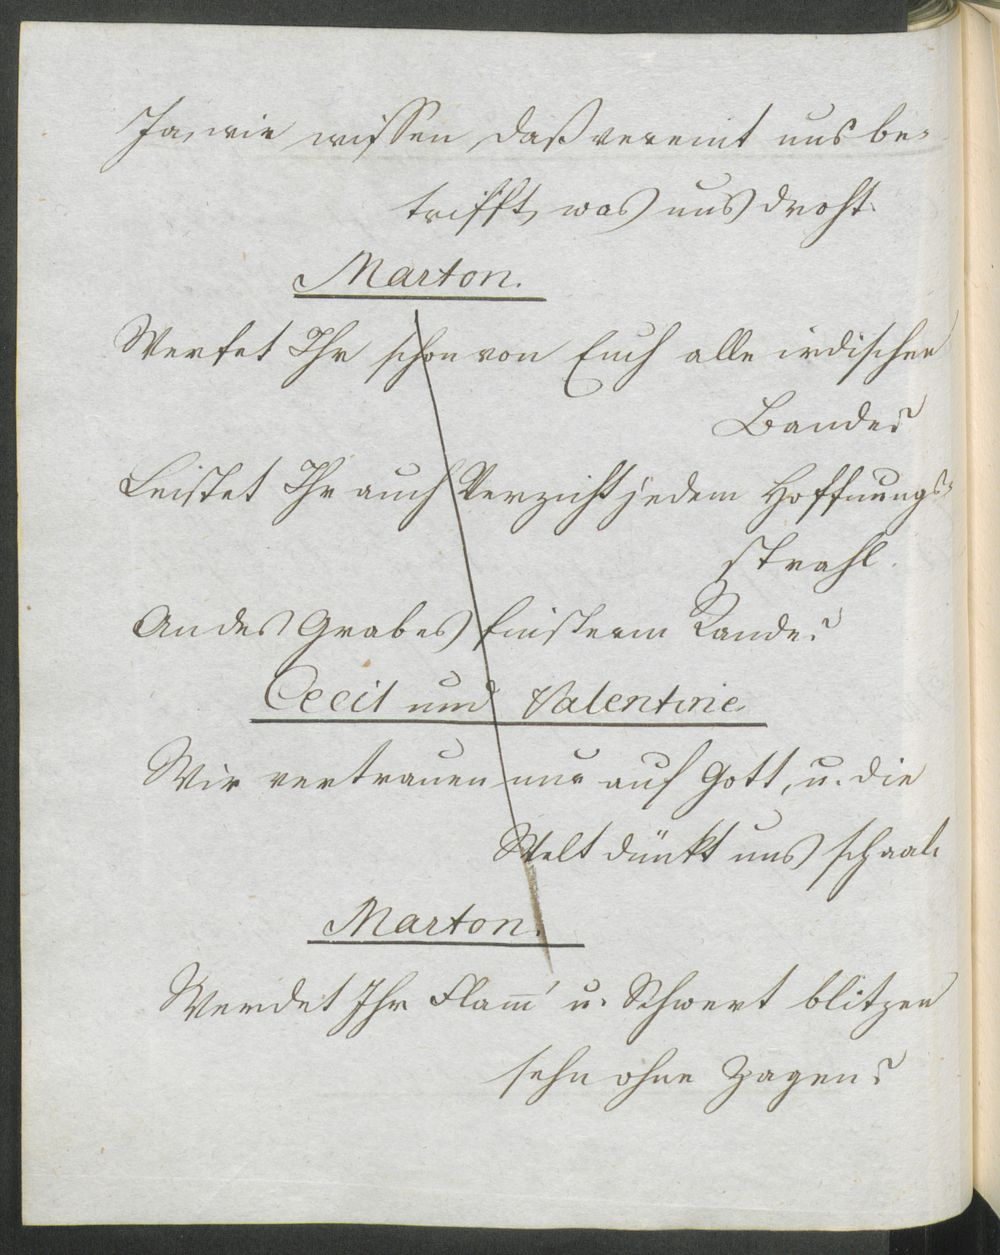 Ja, wir wissen, daß vereint uns be-
trifft, was uns droht.
Marton.
Werfet Ihr schon von Euch alle irdischen
Bande?
Leistet Ihr auch Verzicht jedem Hoffnungs-
strahl.
An des Grabes finsterm Rande?
Cecil und Valentine
Wir vertrauen nur auf Gott, u. die
Welt dünkt uns schaal.
Marton.
Werdet Ihr Flam̅' u. Schwert blitzen
sehn ohne Zagen?